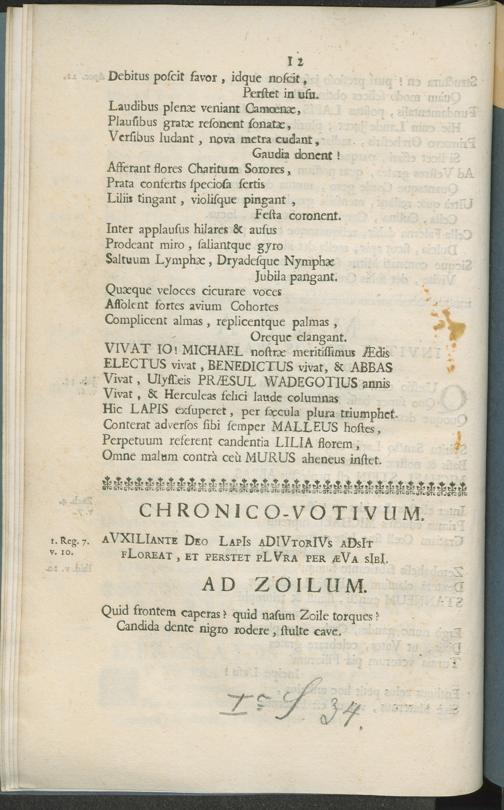 12
Debitus poscit favor, idque noscit,
Perstet in usu.
Laudibus plenæ veniant Camœnæ,
Plausibus gratæ resonent sonatæ,
Versibus ludant, nova metra cudant,
Gaudia donent!
Afferant flores Charitum Sorores,
Prata consertis speciosa sertis
Liliis tingant, violisque pingant,
Festa coronent.
Inter applausus hilares & ausus
Prodeant miro, saliantque gyro
Saltuum Lymphæ, Dryadesque Nymphæ
Jubila pangant.
Quæque veloces cicurare voces
Assolent fortes avium Cohortes
Complicent almas, replicentque palmas,
Oreque clangant.
VIVAT IO! MICHAEL nostræ meritissimus Ædis
ELECTUS vivat, BENEDICTUS vivat, & ABBAS
Vivat, Ulysseis PRÆSUL WADEGOTIUS annis
Vivat, & Herculeas felici laude columnas
Hic LAPIS exsuperet, per sæcula plura triumphet.
Conterat adversos sibi semper MALLEUS hostes,
Perpetuum referent candentia LILIA florem,
Omne malum contrà ceù MURUS aheneus instet.
CHRONICO-VOTIVUM.
1. Reg. 7. v. 10.
AVXILIANTE DEO LAPIS ADIVTORIVS ADSIT
FLOREAT, ET PERSTET PLVRA PER ÆVA SIBI.
AD ZOILUM.
Quid frontem caperas? quid nasum Zoile torques?
Candida dente nigro rodere, stulte cave.
34.